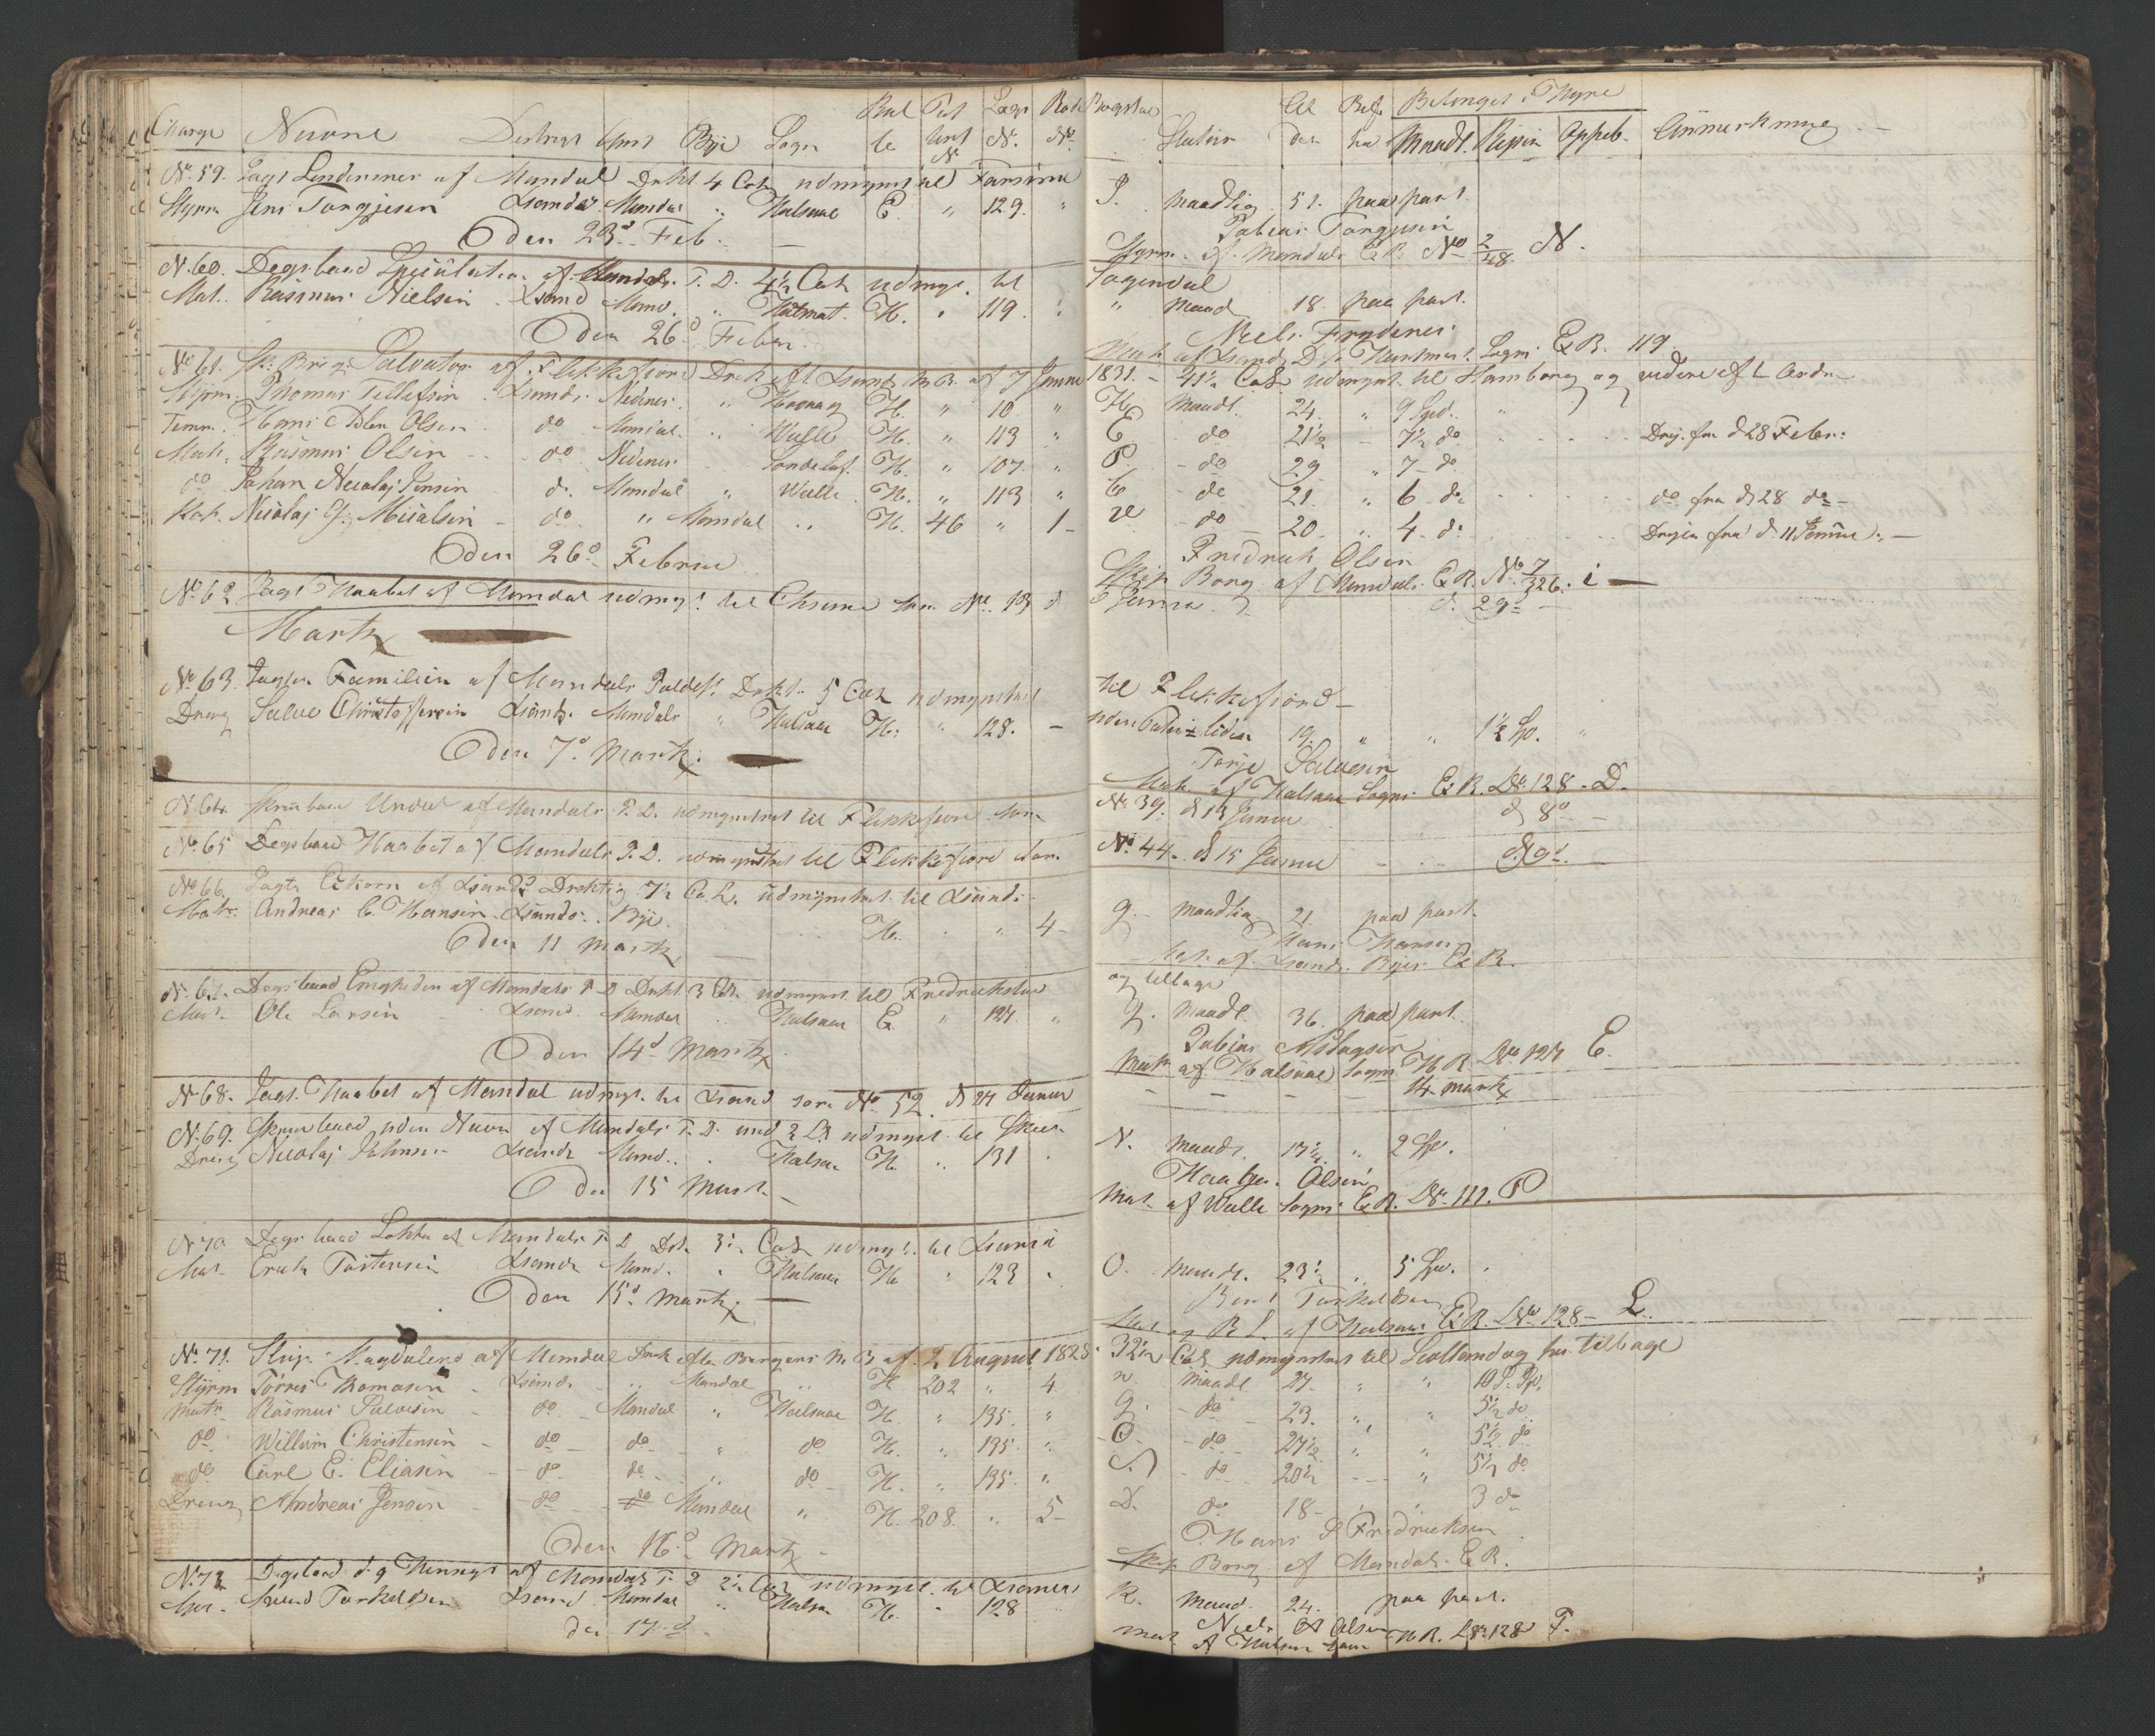 Charge Navne District Amt Bÿe Sogn Rul le Pat Unt No Lægs No. Rode No. Bogstav Statur Al der Bef. fra Betinget i Hyre Maandl. Reÿsen Oppeb. Anmerkning
No. 59. Jagt Lendesmes af Mandal Drægt 4 Coth udmynst. til Farsund
Styrm Jens Torgjesen Xsands Mandal " Halsaae E. " 129. " P. maadlig 51. paa part.
Den 23d Feb. Tobias Torgjesen
Styrm. af Mandals E R. No 2/48. N.
N. 60. Degsbaad Speculation af Mandals T. D. 4½ Coth udmyst. til Sogendal
Mat. Rasmus Nielsen Xsand Mand. " Hartmat. H. " 119. " " maand 18. paa part.
Den 26d Febru. Neels Frydenes
Mat. af Xsands D. Hartmat. Sogn E R. 119.
No. 61. Sk. Brig Salvator af Flekkefiord Dræk. eft. Xsands M. B. af 7 Janu 1831. - 41½ Coth udmynst. til Hamborg og videre eft. Ordre
Styrm. Thomas Tellefsen Xsands Nedenes " Hoovaag H. " 10. " H. Maadl. 24. " 9 Spd. "
Temm. Hans Adn Olsen do Mandal " Walle H. " 113 " C do 21½ - 7½ do Drej. fra d 28 Febr:
Mat. Rasmus Olsen do Nedenes Landelaf. H. " 107. " P - do 29 " 7 - do
do Johan Nicolaj Jensen do Mandal " Walle H. " 113 " C - do 21. " 6 - do do fra d 28 do -
Kok. Nicolaj G. Micalsen - do " Mandal " H. 46 " 1 - - do 20 " 4 - do Drejen fra d 11 Januue. -
Den 26d Februe Fridrick Olsen
Skip. Borg af Mandals E R. No. 7/326. i -
No. 62 Jagt Haabet af Mandal udmyst. til Chrsund som No. 13 d 6 Janua. d. 29d -
Martz
No. 63. Jagten Familien af Mandals Toldst. Drægt. 5 Coth udmynstret til Flekkefiord -
Dreng Salve Christoffersen Xsands Mandals " Halsaae H. " 128. - uden 19. " " 1½ Sp. "
Den 7d Martz. Torje Salvesen
Mat. af Halsaae Sogn E R. No 128. D.
N. 64. Skruebaad Undal af Mandals T. D. udmynstret til Flekkefiord som No. 39. d 13 Janua d 8d -
No. 65 Degsbaad Haabet af Mandals T. D. udmynstret til Flekkefiord som No. 44. d 15 Janua d 9d. -
No. 66. Jagts Eikorn af Xsands Drægtig 7½ Coth. udmynstret til Xsands.
Matr. Andreas C. Hansen Xsands. Bÿe. H. " " 4 - G. maadlig 21. paa part.
Den 11 Martz Hans Hansen
Mat. af Xsands Byes E. R.
N. 67. Degsbaad Enigheden af Mandals T D Drægt 3 Coth. udmynst. til Fredrickstad og tilbage
Mat. Ole Larsen Xsand. Mandal Halsaae E. " 127. " G. maadl. 36. paa part.
Den 14d Martz Tobias Aslagsen
Mat. af Halsaae Sogn H R. No 127 E.
N. 68. Jagt. Haabet af Mandal udmyst. til Xsand som No. 52. d 24 Janua - - - - 14 martz
N. 69. Skruebaad uden Navn af Mandals T. D. und 2 C. udmynst. til Skien
Dreng Nicolaj Johnsen Xsands Mand. " Halsaae H. " 131 N. maadl. 17½. " 2 Sp.
Den 15 Mart. - Haaken Olsen
Mat. af Walle Sogn E R. No 111. P
N 70 Degsbaad Lokke af Mandals T D Dræg. 3½ Coth udmyst. til Xsand
Mat. Erick Tostensen Xsands Mand. " Halsaae H " 123 " O. maadl. 23½ " 5 Sp. "
Den 15d. Martz. - Bent Torkeldsen
Mat og B L. af Halsaae E R. No 128 - L.
No. 71. Slup. Magdalena af Mandal Dræk efter Bergens M. B. af 2 August 1828 - 32½ Coth udmynstret til Scotland og hie. tilbage
Styrm Törres Thomasen Xsands. " Mandal " H 202 " 4 n. Maadl. 27. " " 10 P. Sp.
Matr. Rasmus Salvesen - do - Mandal " Halsaae H. " 135. " G. - do 23. " " 5½ do
do Willum Christensen - do - do - " do H. " 135. " O. - do 27½ " " 5½ do
do Carl E. Eliasen - do do " do H. " 135. " S - do 20½ - - " 5½ do
Dreng Andreas Jensen - do do Mandal " H. 208. " 5 - D. do 18 - 3 do
Den 16d Martz Hans P Fredricksen
Skip Borg af Mandals E R.
N. 72 Degsbaad d. 9 Hennegs af Mandals T. D 2½ Coth udmynst. til Xsand
Mat. Aanund Torkeldsen Xsand Mandal " Halsaa H. " 128 R. maad. 24. paa part.
den 17.d - Niels A Olsen
Mat. af Halsaae Sogn H R. No 128 T.